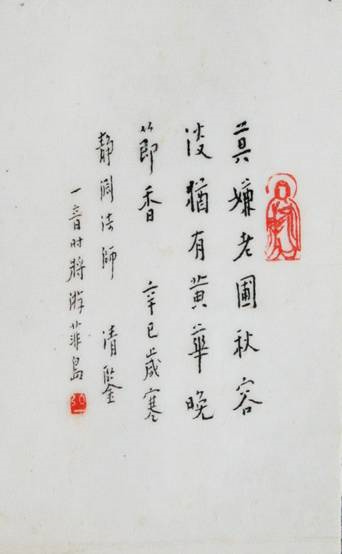 莫嫌老圃秋容
淡猶有黃華晚
節香 辛巳歲寒
靜法師 清鑒
一音時將游菲島